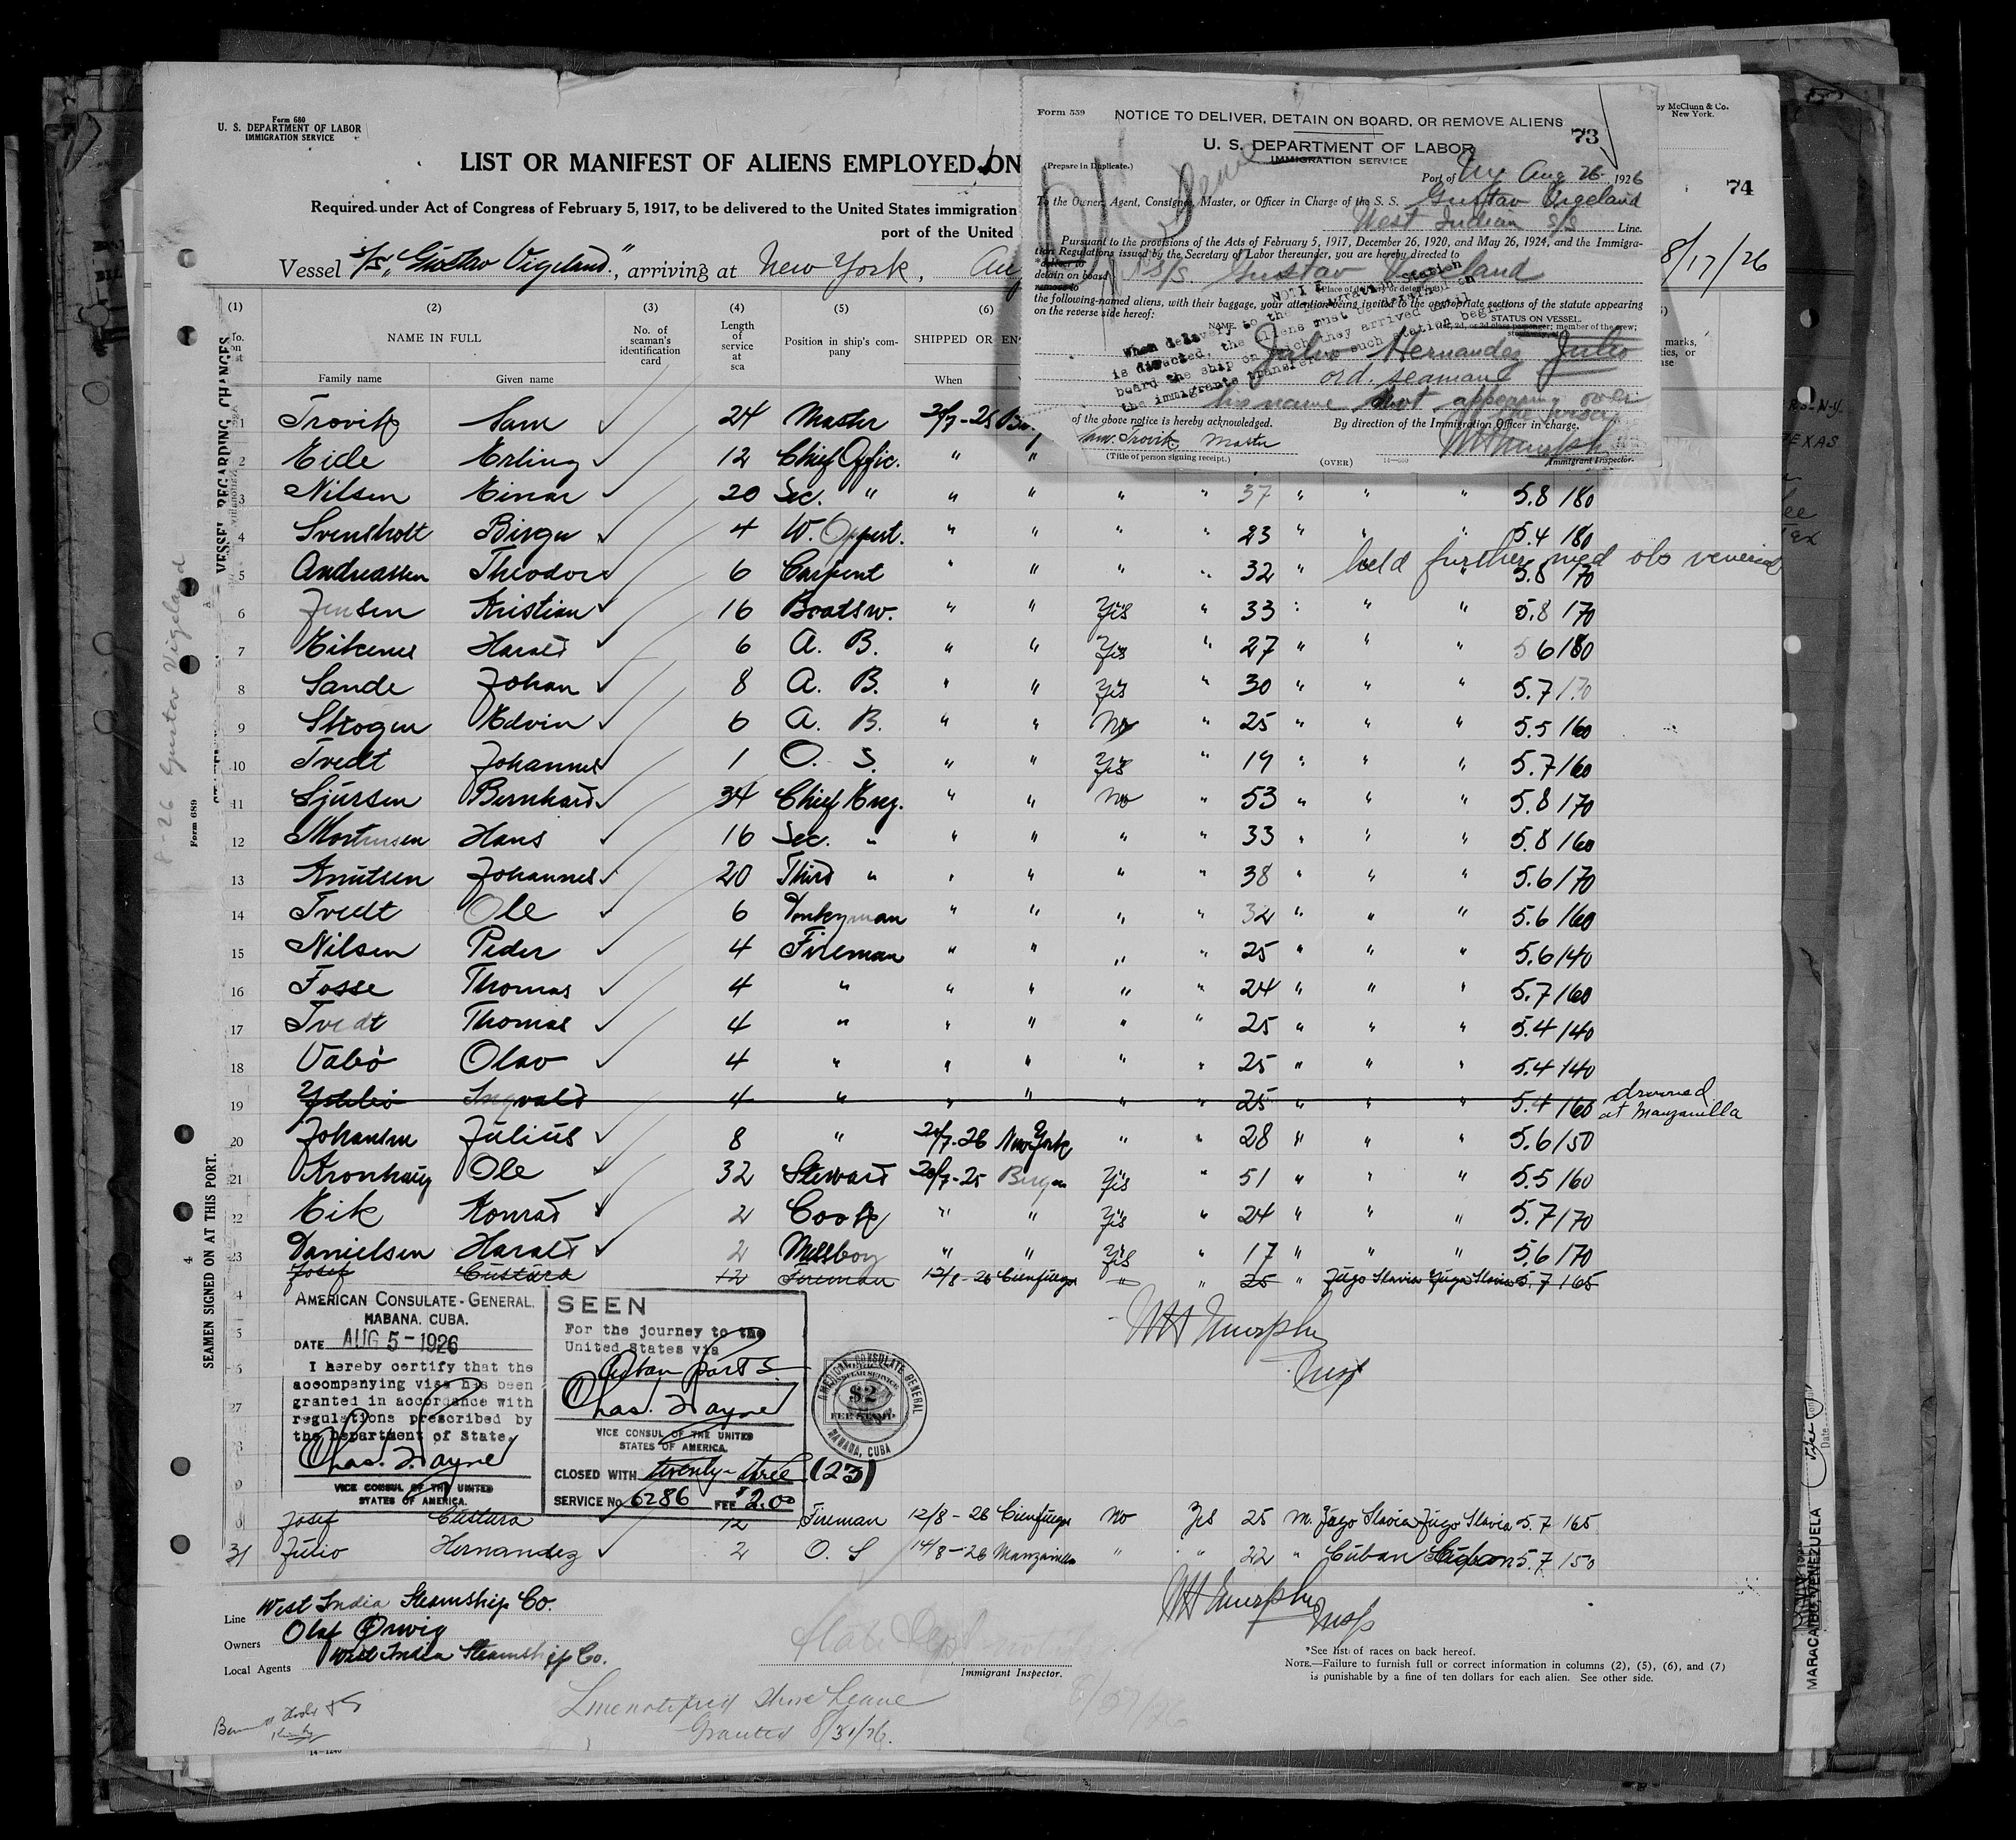 Form 680
U. S. DEPARTMENT OF LABOR
IMMIGRATION SERVICE
LIST OR MANIFEST OF ALIENS EMPLOYED ON
Required under Act of Congress of February 5, 1917, to be delivered to the United States immigration
port of the United
Vessel S/S. "Gustav Vigeland", arriving at New York,
by McClunn & Co.
New York.
74
8/17/26
Form 559
NOTICE TO DELIVER, DETAIN ON BOARD, OR REMOVE ALIENS
73
U. S. DEPARTMENT OF LABOR
IMMIGRATION SERVICE
(Prepare in Duplicate.)
Port of NY Aug 26, 1926
To the Owner, Agent, Consignee, Master, or Officer in Charge of the S. S. Gustav Vigeland
West Indian S/S Line.
Pursuant to the provisions of the Acts of February 5, 1917, December 26, 1920, and May 26, 1924, and the Immigra-
tion Regulations issued by the Secretary of Labor thereunder, you are hereby directed to
detain on board S/S. Gustav Vigeland
the following-named aliens, with their baggage, your attention being invited to the appropriate sections of the statute appearing
on the reverse side hereof:
NAME.
STATUS ON VESSEL.
When delivery to the Immigration Station
is directed, the aliens must be detained on
board the ship on which they arrived until
the immigrants transfer to such station begins
Julio Hernandez Julio
ord. seaman
his name not appearing over
of the above notice is hereby acknowledged.
By direction of the Immigration Officer in charge.
Sam. Trovik Master
(Title of person signing receipt.)
(OVER)
Immigrant Inspector.
(1) (2) (3) (4) (5) (6)
NAME IN FULL
No. of seaman's identification card
Length of service at sea
Position in ship's company
SHIPPED OR EN
Family name Given name When
1 Trovik Sam 24 Master 28/7-25
2 Eide Erling 12 Chief Offic. " "
3 Nilsen Einar 20 Sec. " " " " " 37 " " " 5.8 180
4 Svensholt Birger 4 W. Oppert. " " " " 23 " " " 5.4 180
held further med obs venereal
5 Andreassen Theodor 6 Carpent " " " " 32 " " " 5.8 170
6 Jensen Kristian 16 Boatsw. " " Yes " 33 " " " 5.8 170
7 Eikenes Harald 6 A. B. " " Yes " 27 " " " 5.6 180
8 Sande Johan 8 A. B. " " Yes " 30 " " " 5.7 170
9 Skogen Edvin 6 A. B. " " No " 25 " " " 5.5 160
10 Tvedt Johannes 1 O. S. " " Yes " 19 " " " 5.7 160
11 Sjursen Bernhard 34 Chief Eng. " " No " 53 " " " 5.8 170
12 Mortensen Hans 16 Sec. " " " " " 33 " " " 5.8 160
13 Knutsen Johannes 20 Third " " " " " 38 " " " 5.6 170
14 Tvedt Ole 6 Donkeyman " " " " 32 " " " 5.6 160
15 Nilsen Peder 4 Fireman " " " " 25 " " " 5.6 140
16 Fosse Thomas 4 " " " " " 24 " " " 5.7 160
17 Tvedt Thomas 4 " " " " " 25 " " " 5.4 140
18 Vabö Olav 4 " " " " " 25 " " " 5.4 140
19 Ingvald 4 " " " " " 25 " " " 5.4 160 drowned
at Manzanilla
20 Johansen Julius 8 " 24/7-26 New York " " 28 " " " 5.6 150
21 Kronheig Ole 32 Steward 28/7-25 Bergen Yes " 51 " " " 5.5 160
22 Eik Konrad 2 Cook " " Yes " 24 " " " 5.7 170
23 Danielsen Harald 2 Messboy " " Yes " 17 " " " 5.6 170
Josef Custura 12 Fireman 12/8-26 Cienfuegos " " 25 " Jugo Slavia Jugo Slavia 5.7 165
AMERICAN CONSULATE-GENERAL.
HABANA, CUBA.
DATE AUG 5-1926
I hereby certify that the
accompanying visa has been
granted in accordance with
regulations prescribed by
the Department of State.
Chas. Hayne
VICE CONSUL OF THE UNITED
STATES OF AMERICA.
SEEN
For the journey to the
United States via
Cuban ports
Chas. Hayne
VICE CONSUL OF THE UNITED
STATES OF AMERICA.
CLOSED WITH twenty-three (23)
SERVICE No. 6286 FEE $2.00
AMERICAN CONSULATE GENERAL
$2
FEE STAMP
HABANA, CUBA
WH Murphy
Insp
Josef Custura 12 Fireman 12/8-26 Cienfuegos No Yes 25 M. Jugo Slavia Jugo Slavia 5.7 165
31 Julio Hernandez 2 O. S 14/8-26 Manzanilla " " 22 " Cuban Cuban 5.7 150
WH Murphy
Insp
Line West India Steamship Co.
Owners Olaf Orvig
Local Agents West India Steamship Co.
Immigrant Inspector.
*See list of races on back hereof.
NOTE.—Failure to furnish full or correct information in columns (2), (5), (6), and (7)
is punishable by a fine of ten dollars for each alien. See other side.
Line notified Shore Leave
Granted 8/31/26.
14-1240
8-26 Gustav Vigeland
Form 689
VESSEL REGARDING CHANGES
SEAMEN SIGNED ON AT THIS PORT.
MARACAIBO, VENEZUELA
Date